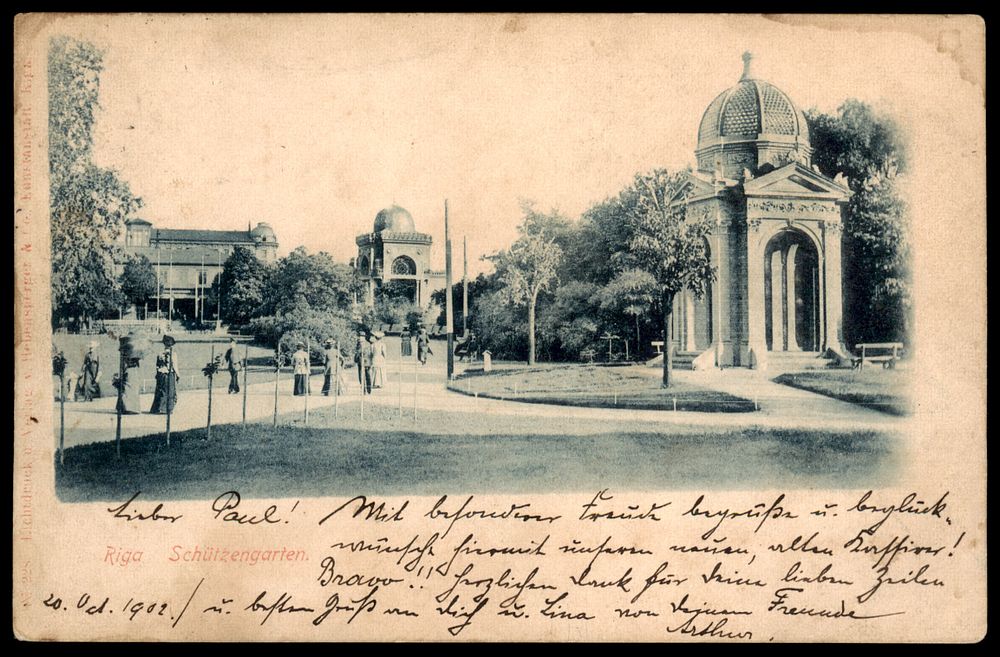 Lieber Paul! Mit besonderer Freude begrüße u. beglück-
wünsche hiermit unseren neuen, alten Kassirer!
Riga Schützengarten.
Bravo!! Herzlichen Dank für Deine lieben Zeilen
20. Oct. 1902 / u. besten Gruß an Dich u. Lina von Deinem Freunde
Arthur.
No 228 Lichtdruck u. Verlag v. Hebensperger & Co., Kunstanstalt Riga